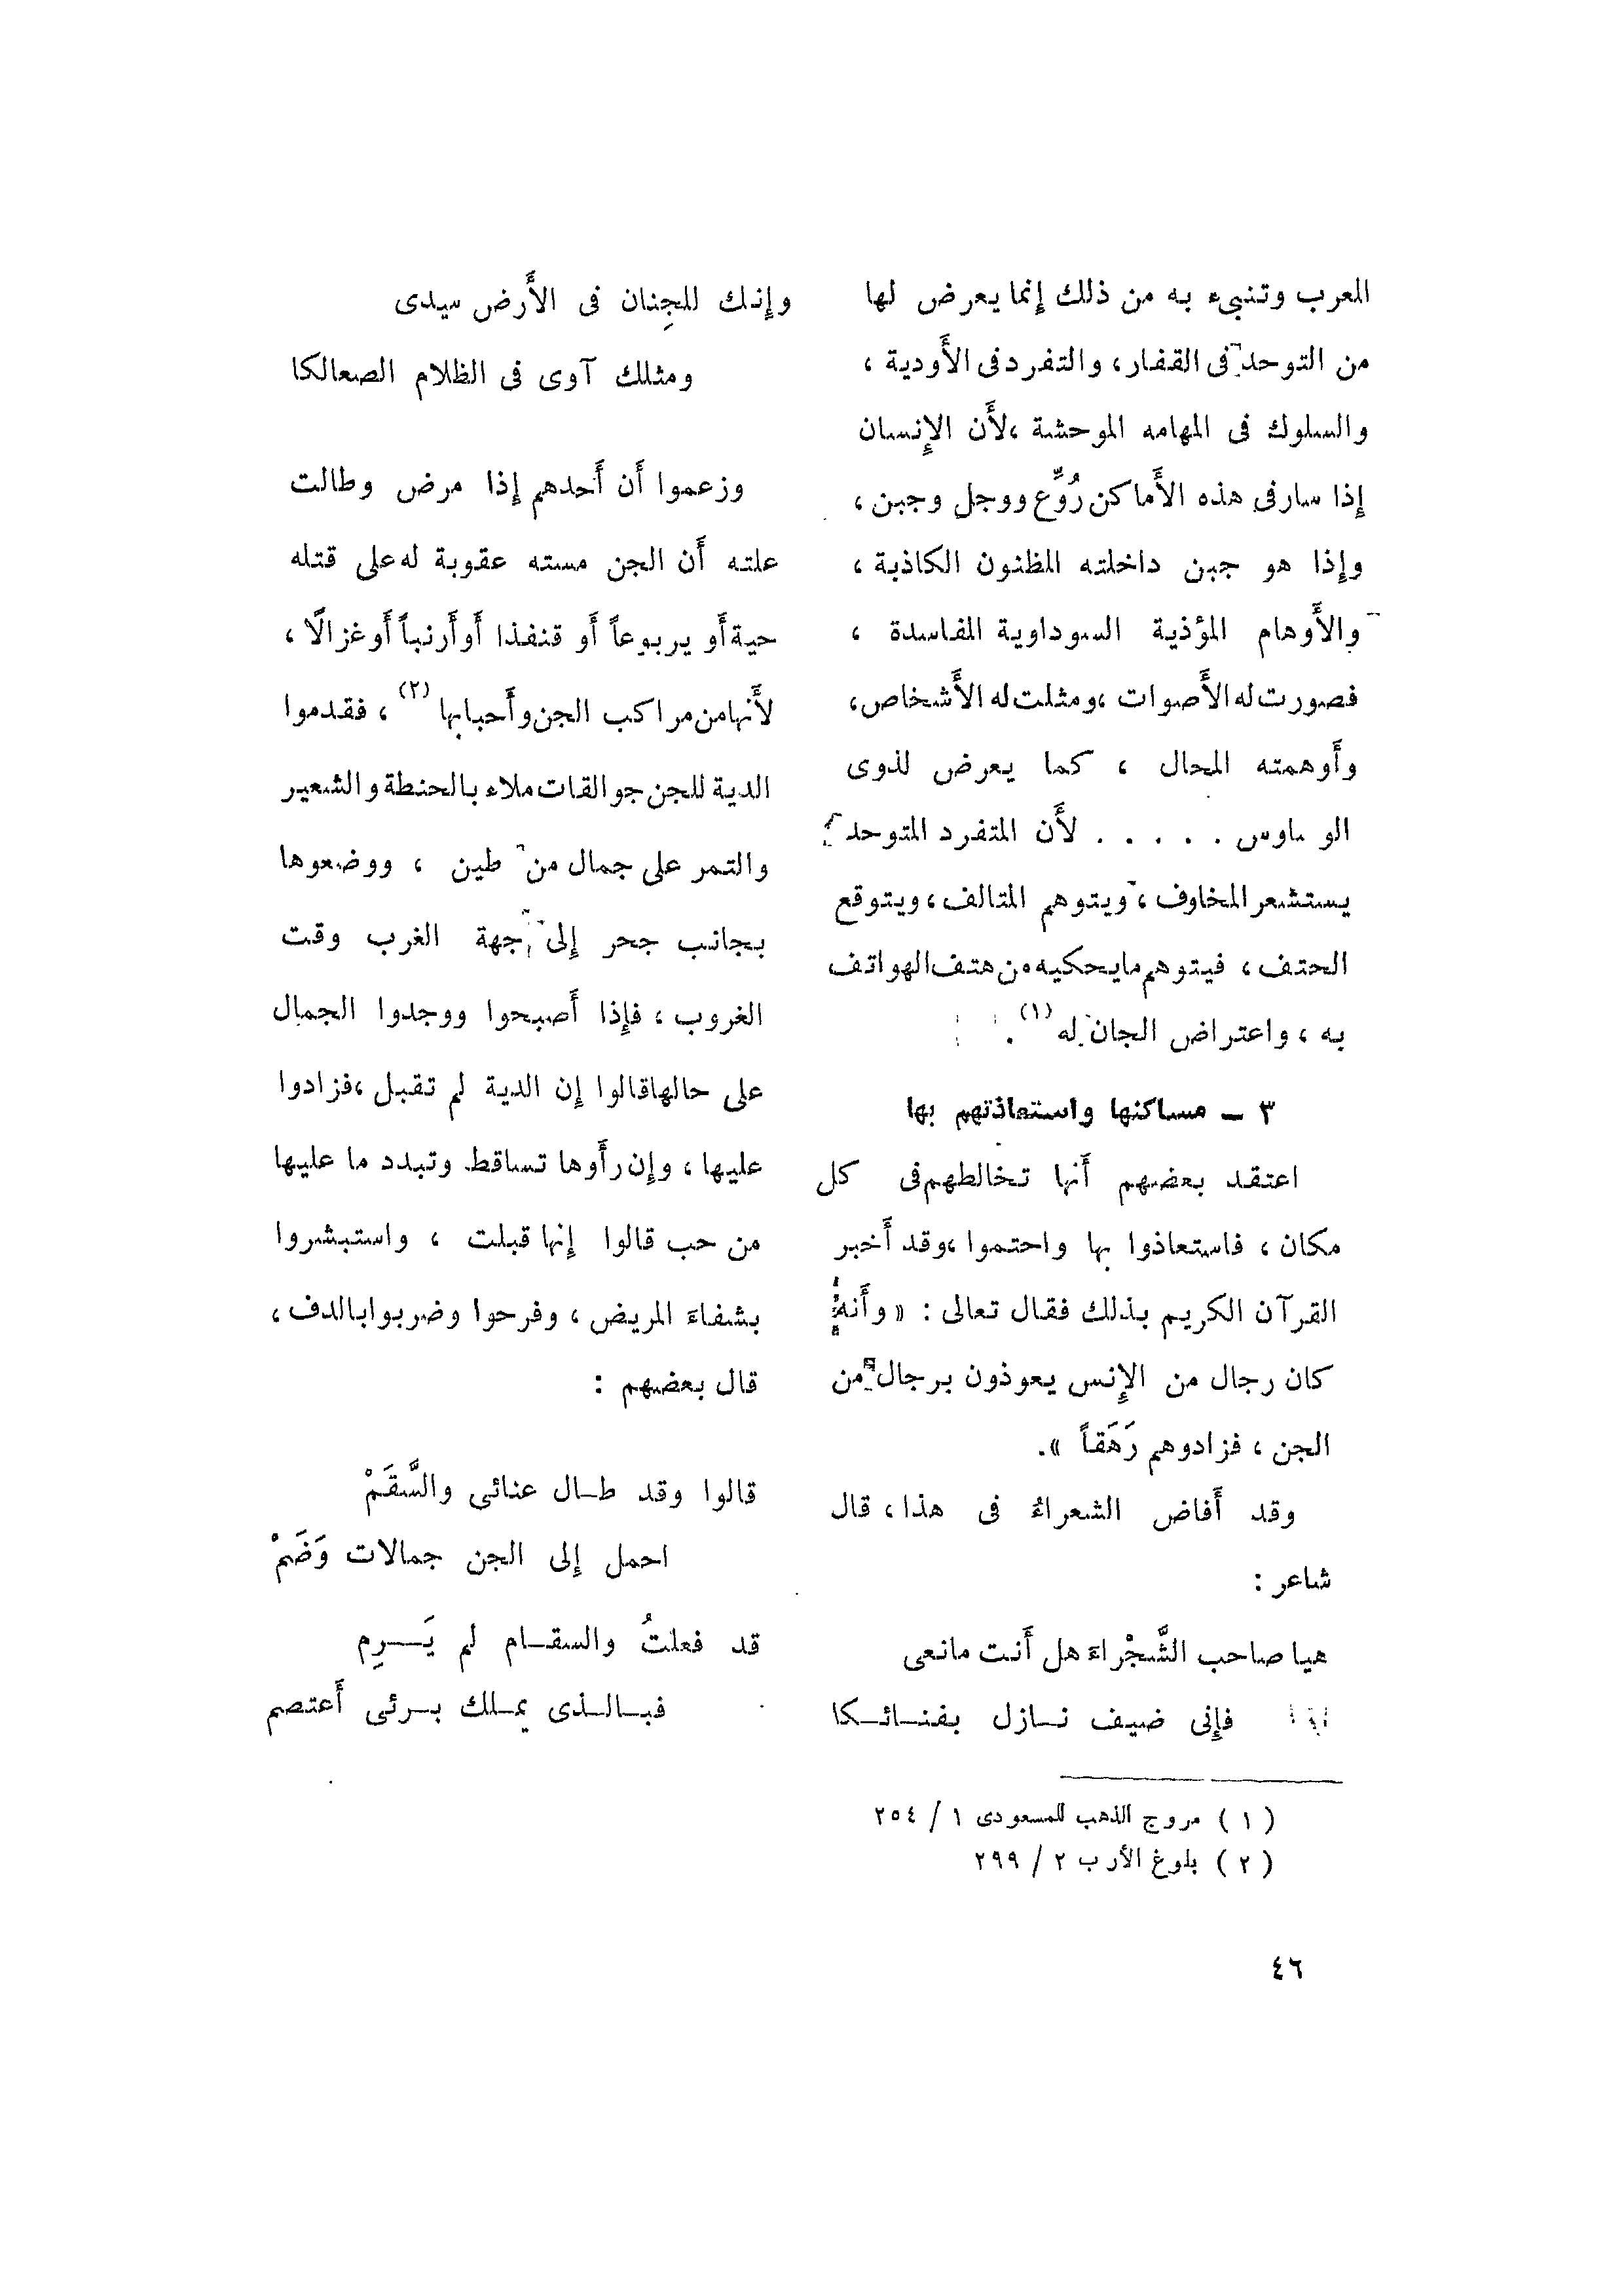 العرب وتنبىء به من ذلك إنما يعرض لها
من التوحد فى القفار، والتفرد فى الأودية ،
والسلوك فى المهامه الموحشة ، لأن الإنسان
إذا سار فى هذه الأماكن رُوِّع ووجل وجبن ،
وإذا هو جبن داخلته الظنون الكاذبة ،
والأوهام المؤذية السوداوية الفاسدة ،
فصورت له الأصوات ، ومثلت له الأشخاص،
وأوهمته المحال ، كما يعرض لذوى
الوساوس . . . . . لأن المتفرد المتوحد
يستشعر المخاوف ، ويتوهم المتالف ، ويتوقع
الحتف ، فيتوهم ما يحكيه من هتف الهواتف
به ، واعتراض الجان له (١) .
٣ – مساكنها واستعاذتهم بها
اعتقد بعضهم أنها تخالطهم فى كل
مكان ، فاستعاذوا بها واحتموا ، وقد أخبر
القرآن الكريم بذلك فقال تعالى : « وأنه
كان رجال من الإنس يعوذون برجال من
الجن ، فزادوهم رَهَقاً ».
وقد أفاض الشعراءُ فى هذا ، قال
شاعر :
هيا صاحب الشَّجْراءَ هل أنت مانعى
فإنى ضيف نازل بفنائكا
وإنك للجِنان فى الأرض سيدى
ومثلك آوى فى الظلام الصعالكا
وزعموا أن أحدهم إذا مرض وطالت
علته أن الجن مسته عقوبة له على قتله
حية أو يربوعاً أو قنفذا أو أرنباً أو غزالًا ،
لأنها من مراكب الجن وأحبابها (٢) ، فقدموا
الدية للجن جوالقات ملاء بالحنطة والشعير
والتمر على جمال من طين ، ووضعوها
بجانب جحر إلى جهة الغرب وقت
الغروب ، فإذا أصبحوا ووجدوا الجمال
على حالها قالوا إن الدية لم تقبل ، فزادوا
عليها ، وإن رأوها تساقط وتبدد ما عليها
من حب قالوا إنها قبلت ، واستبشروا
بشفاءَ المريض ، وفرحوا وضربوا بالدف ،
قال بعضهم :
قالوا وقد طـال عنائى والسَّقَمْ
احمل إلى الجن جمالات وَضَمْ
قد فعلتُ والسقـام لم يَــرِم
فبـالـذى يمـلك بـرئى أعتصم
( ١ ) مروج الذهب للمسعودى ١ / ٢٥٤
( ٢ ) بلوغ الأرب ٢ / ٢٩٩
٤٦